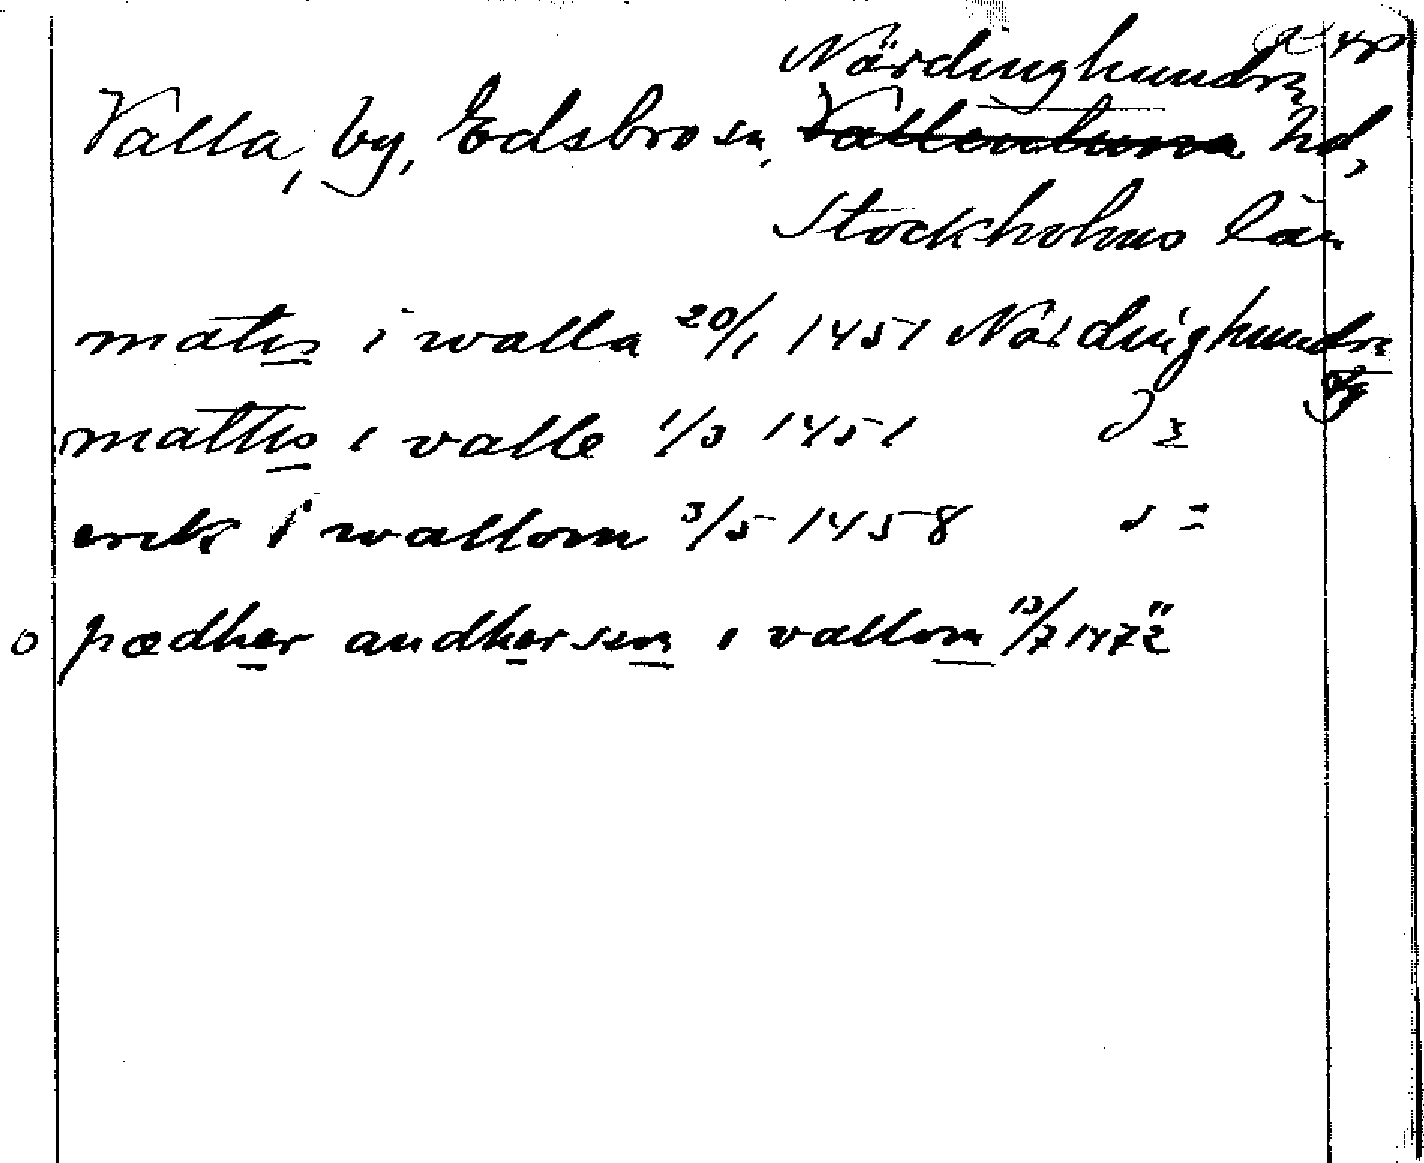 Närdinghundra
Valla, by, Edsbro sn, Vallentuna hd,
Stockholms län
matis i walla 20/1 1451 Närdinghundra
mattis i valle 1/3 1451
erik i wallom 3/5 1458
pædher andherson i vallom 13/7 1472